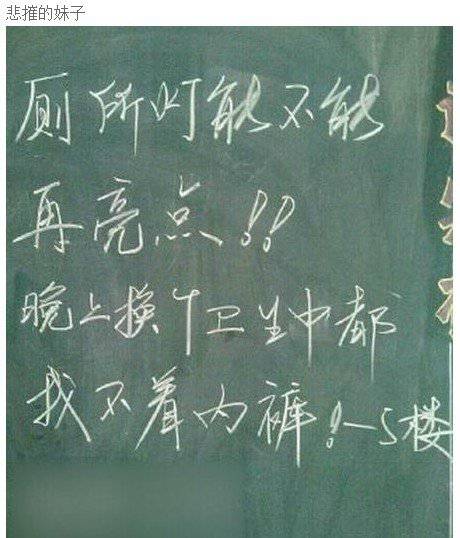 悲推的妹子
厕所灯能不能
再亮点!!
晚上换个卫生巾都
找不着内裤!—5楼